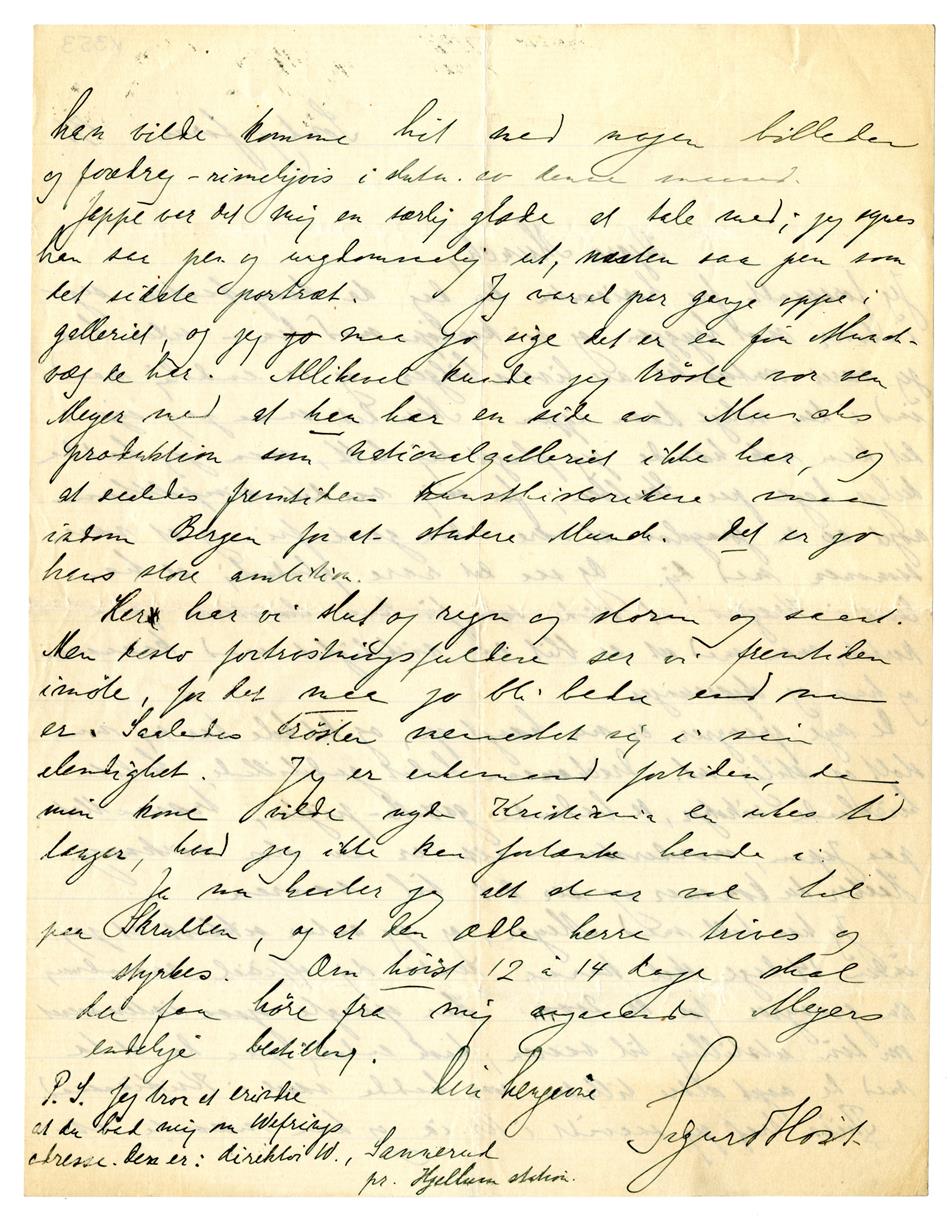 han vilde komme hit med nogen billeder
og foredrag - rimeligvis i slutn. av denne maaned.
Jappe var det mig en særlig glæde at tale med; jeg synes
han saa pen og ungdommelig ut, næsten saa pen som
det sidste portræt. Jeg var et par gange oppe i
galleriet, og jeg jo maa jo sige det er en fin Munch-
væg de har. Allikevel kunde jeg trøste vor ven
Meyer med at han har en side av Munchs
produktion som Nationalgalleriet ikke har, og
at saaledes fremtidens kunsthistorikere maa
indom Bergen for at studere Munch. Det er jo
hans store ambition.
Her har vi slut og regn og storm og saant.
Men desto fortrøstningsfuldere ser vi fremtiden
imøte, for det maa jo bli bedre end nu
er. Saaledes trøster mennesket sig i sin
elendighet. Jeg er enkemand fortiden, da
min kone vilde nyde Kristiania en ukes tid
længer, hvad jeg ikke kan fortænke hende i.
Ja nu haaber jeg alt staar vel til
paa Skrubben, og at den ædle herre trives og
styrkes. Om høist 12 à 14 dage skal
du faa høre fra mig angaaende Meyers
endelige bestilling.
Din hengivne
Sigurd Høst
P. S. Jeg tror at erindre
at du bad mig om Wefrings
adresse. Den er: direktør W., Sannerud
pr. Hjellum station.